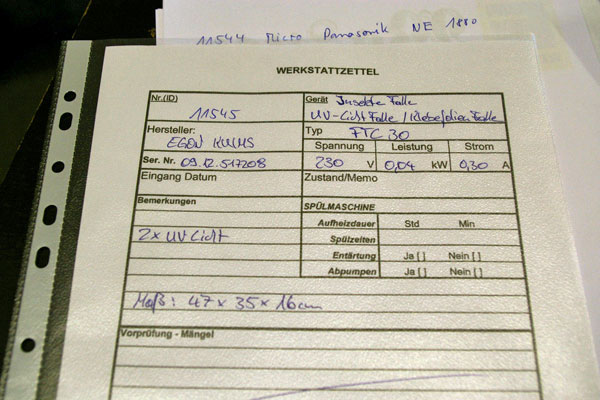 11544 Micro Panasonik NE 1880
WERKSTATTZETTEL
Nr.(ID)
11545
Gerät Insekte Falle
UV-Licht Falle / Klebefolien Falle
Hersteller:
EGON KULMS
Typ FTC 30
Spannung Leistung Strom
Ser. Nr. 09.12.517208
230 V 0,04 kW 0,30 A
Eingang Datum
Zustand/Memo
Bemerkungen
SPÜLMASCHINE
Aufheizdauer Std Min
2x UV Licht
Spülzeiten
Entärtung Ja [ ] Nein [ ]
Abpumpen Ja [ ] Nein [ ]
Maß: 47 x 35 x 16cm
Vorprüfung - Mängel